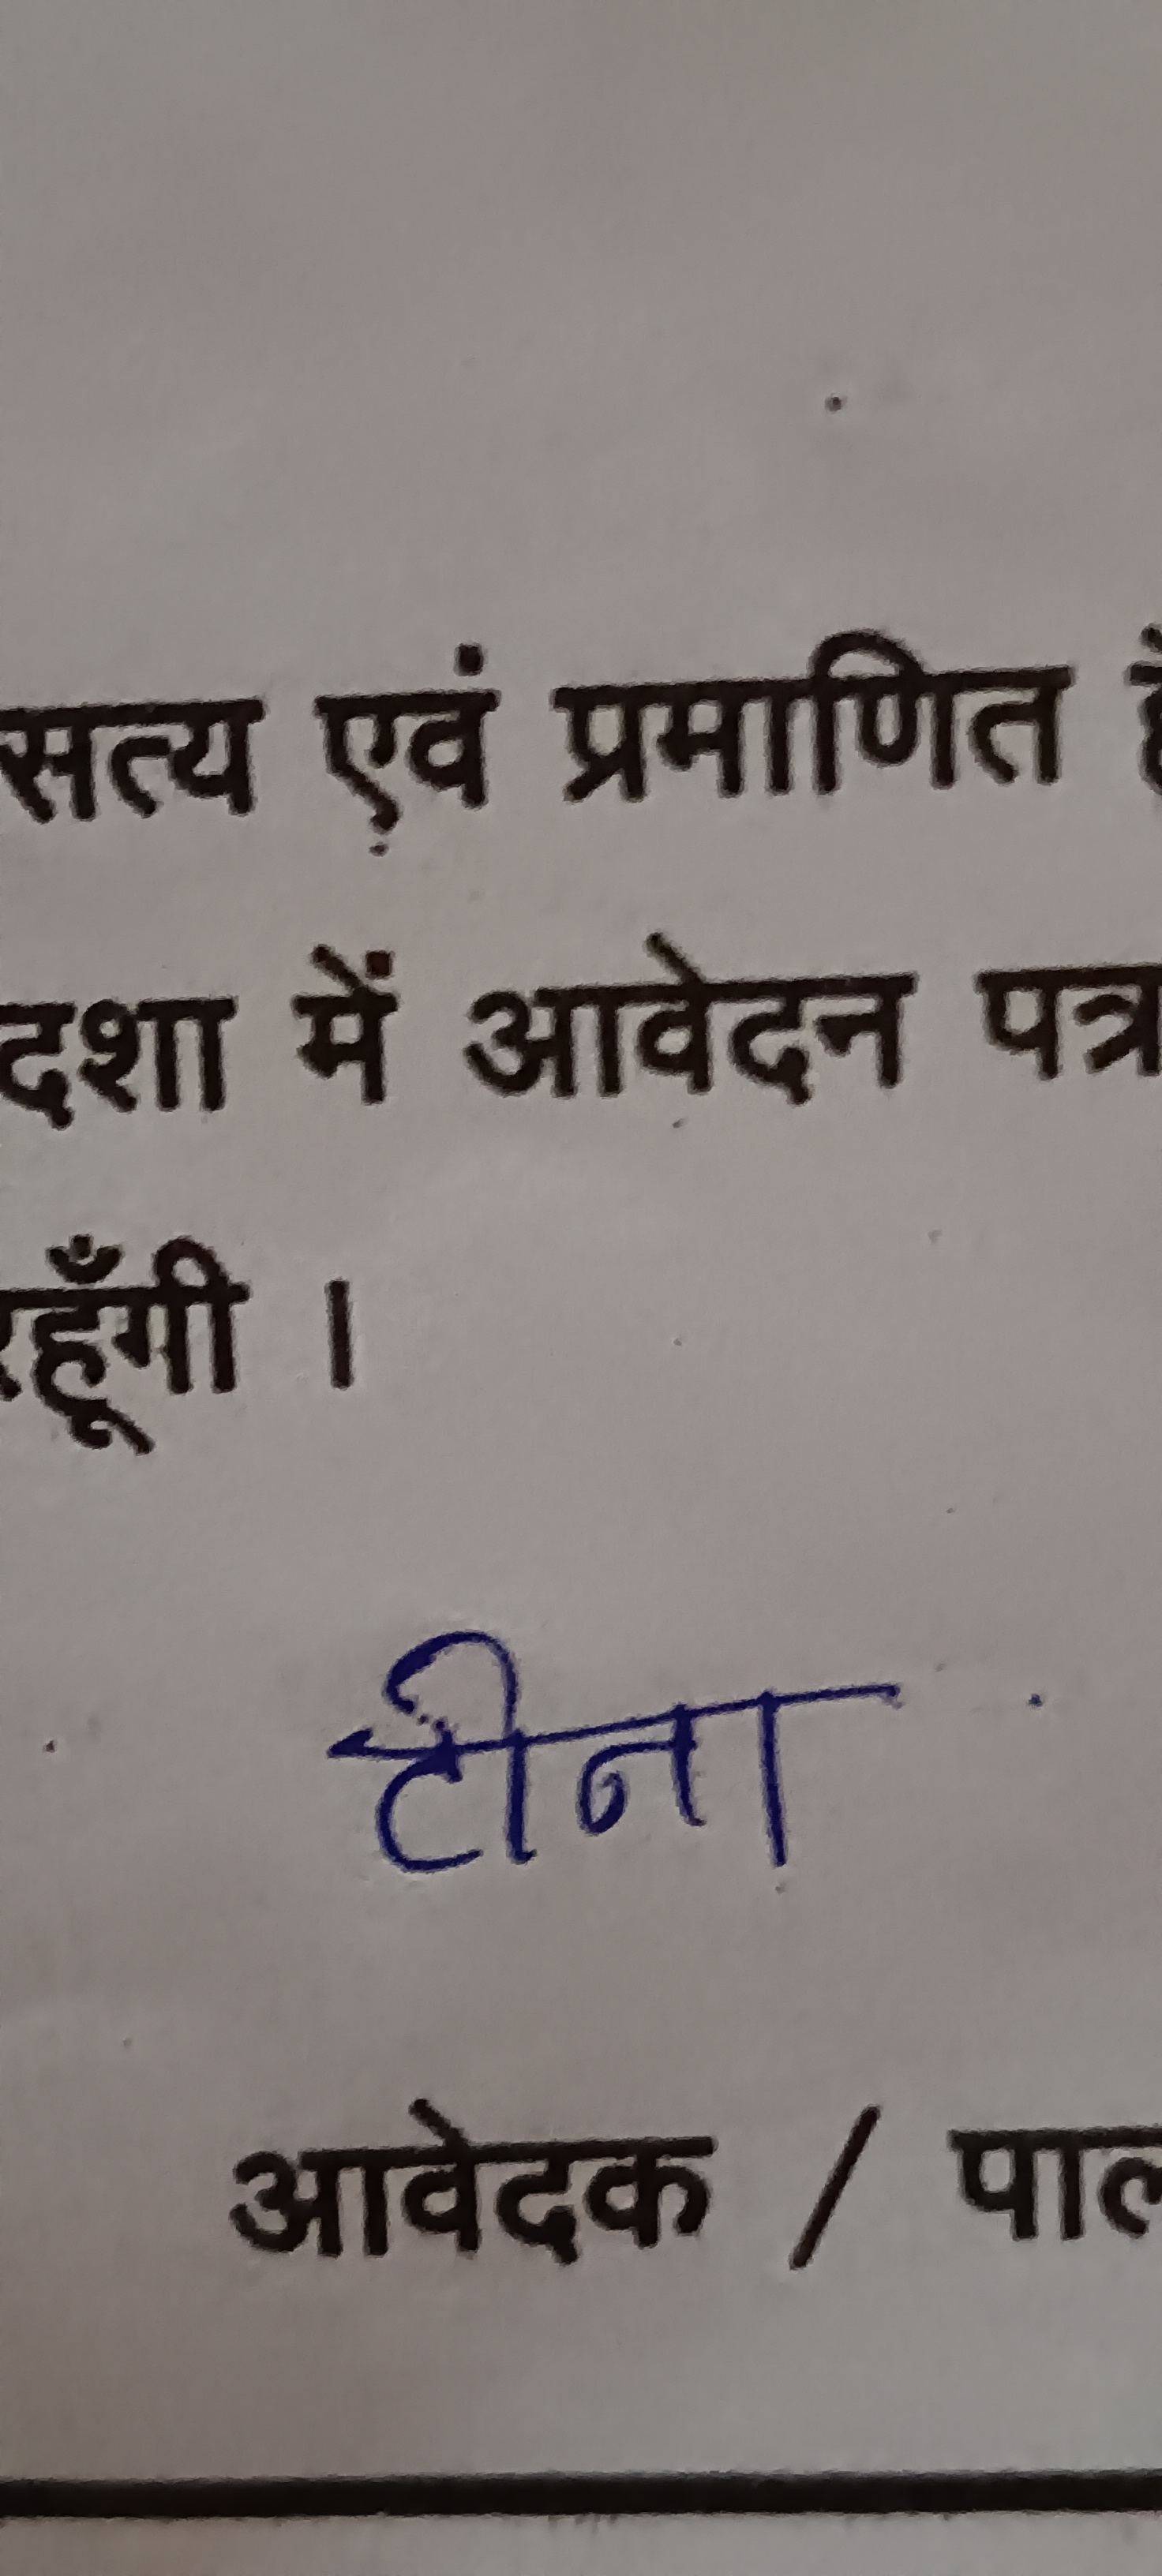 सत्य एवं प्रमाणित
दशा में आवेदन पत्र
रहूँगी ।
टीना
आवेदक /